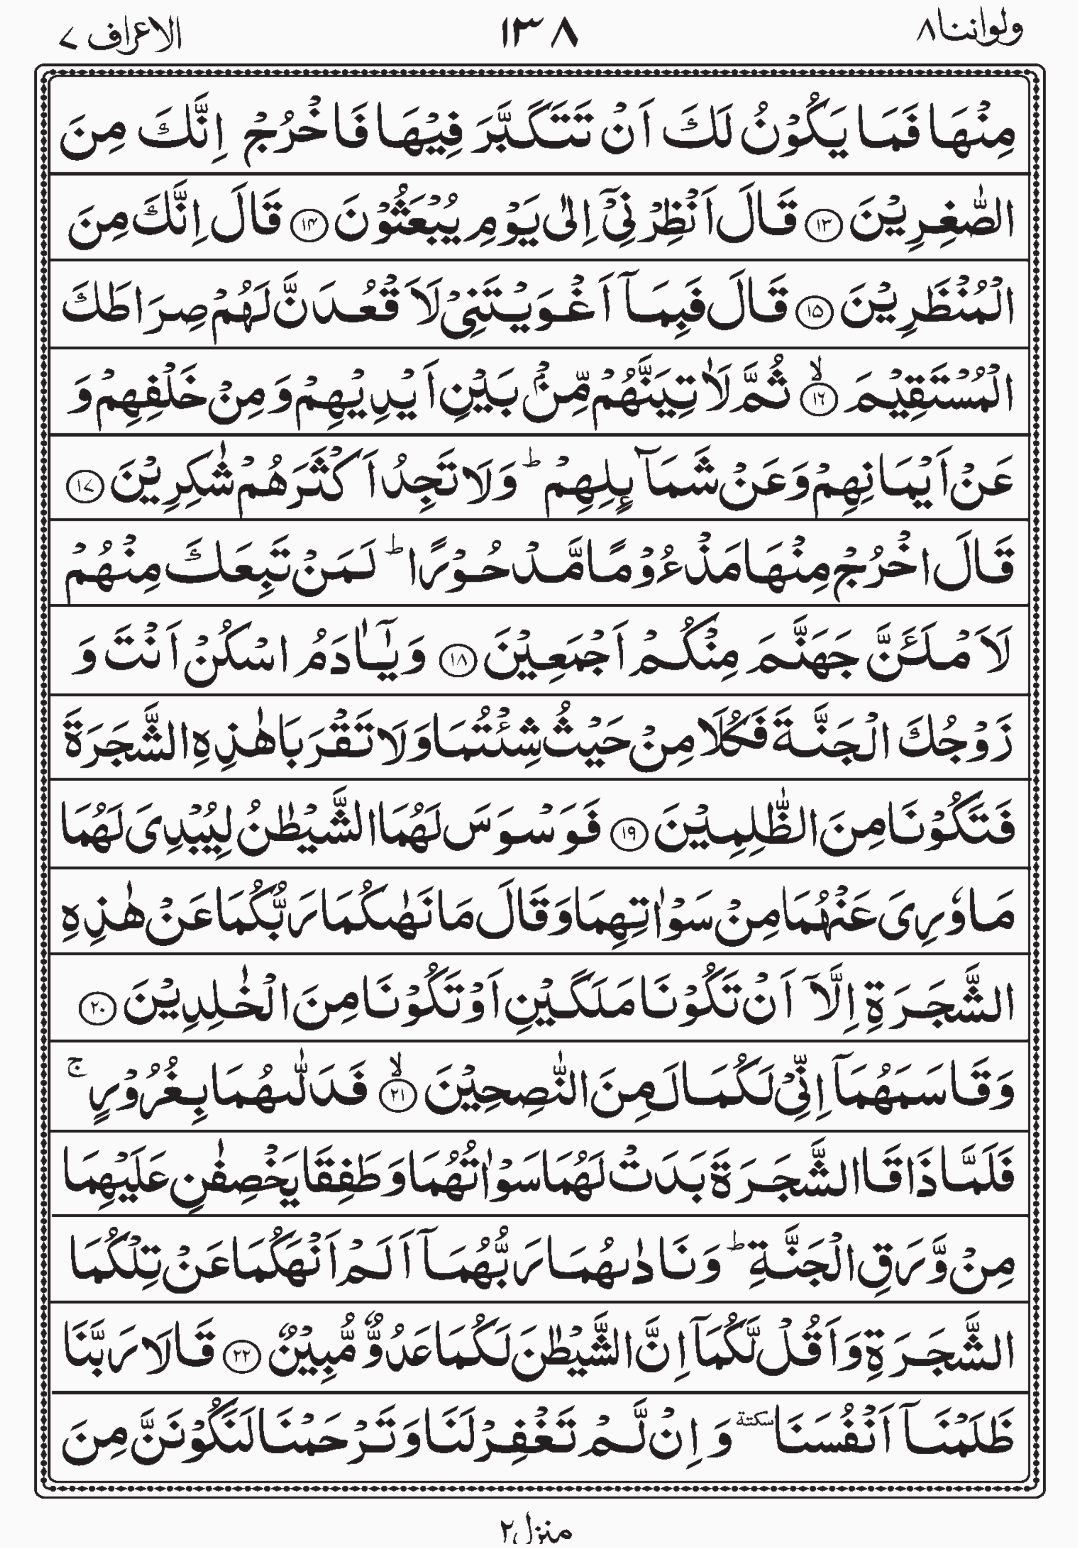 ولواننا ٨ ١٣٨ الاعراف ٧
مِنْهَا فَمَا يَكُوْنُ لَكَ اَنْ تَتَكَبَّرَ فِيْهَا فَاخْرُجْ اِنَّكَ مِنَ
الصّٰغِرِيْنَ ١٣ قَالَ اَنْظِرْنِيْٓ اِلٰى يَوْمِ يُبْعَثُوْنَ ١٤ قَالَ اِنَّكَ مِنَ
الْمُنْظَرِيْنَ ١٥ قَالَ فَبِمَآ اَغْوَيْتَنِيْ لَاَقْعُدَنَّ لَهُمْ صِرَاطَكَ
الْمُسْتَقِيْمَ ۙ١٦ ثُمَّ لَاٰتِيَنَّهُمْ مِّنْۢ بَيْنِ اَيْدِيْهِمْ وَمِنْ خَلْفِهِمْ وَ
عَنْ اَيْمَانِهِمْ وَعَنْ شَمَآئِلِهِمْ ؕ وَلَا تَجِدُ اَكْثَرَهُمْ شٰكِرِيْنَ ١٧
قَالَ اخْرُجْ مِنْهَا مَذْءُوْمًا مَّدْحُوْرًا ؕ لَمَنْ تَبِعَكَ مِنْهُمْ
لَاَمْلَـَٔنَّ جَهَنَّمَ مِنْكُمْ اَجْمَعِيْنَ ١٨ وَيٰٓاٰدَمُ اسْكُنْ اَنْتَ وَ
زَوْجُكَ الْجَنَّةَ فَكُلَا مِنْ حَيْثُ شِئْتُمَا وَلَا تَقْرَبَا هٰذِهِ الشَّجَرَةَ
فَتَكُوْنَا مِنَ الظّٰلِمِيْنَ ١٩ فَوَسْوَسَ لَهُمَا الشَّيْطٰنُ لِيُبْدِيَ لَهُمَا
مَا وٗرِيَ عَنْهُمَا مِنْ سَوْاٰتِهِمَا وَقَالَ مَا نَهٰىكُمَا رَبُّكُمَا عَنْ هٰذِهِ
الشَّجَرَةِ اِلَّآ اَنْ تَكُوْنَا مَلَكَيْنِ اَوْ تَكُوْنَا مِنَ الْخٰلِدِيْنَ ٢٠
وَقَاسَمَهُمَآ اِنِّيْ لَكُمَا لَمِنَ النّٰصِحِيْنَ ۙ٢١ فَدَلّٰىهُمَا بِغُرُوْرٍ ۚ
فَلَمَّا ذَاقَا الشَّجَرَةَ بَدَتْ لَهُمَا سَوْاٰتُهُمَا وَطَفِقَا يَخْصِفٰنِ عَلَيْهِمَا
مِنْ وَّرَقِ الْجَنَّةِ ؕ وَنَادٰىهُمَا رَبُّهُمَآ اَلَمْ اَنْهَكُمَا عَنْ تِلْكُمَا
الشَّجَرَةِ وَاَقُلْ لَّكُمَآ اِنَّ الشَّيْطٰنَ لَكُمَا عَدُوٌّ مُّبِيْنٌ ٢٢ قَالَا رَبَّنَا
ظَلَمْنَآ اَنْفُسَنَا سكتة وَ اِنْ لَّمْ تَغْفِرْ لَنَا وَتَرْحَمْنَا لَنَكُوْنَنَّ مِنَ
منزل ٢